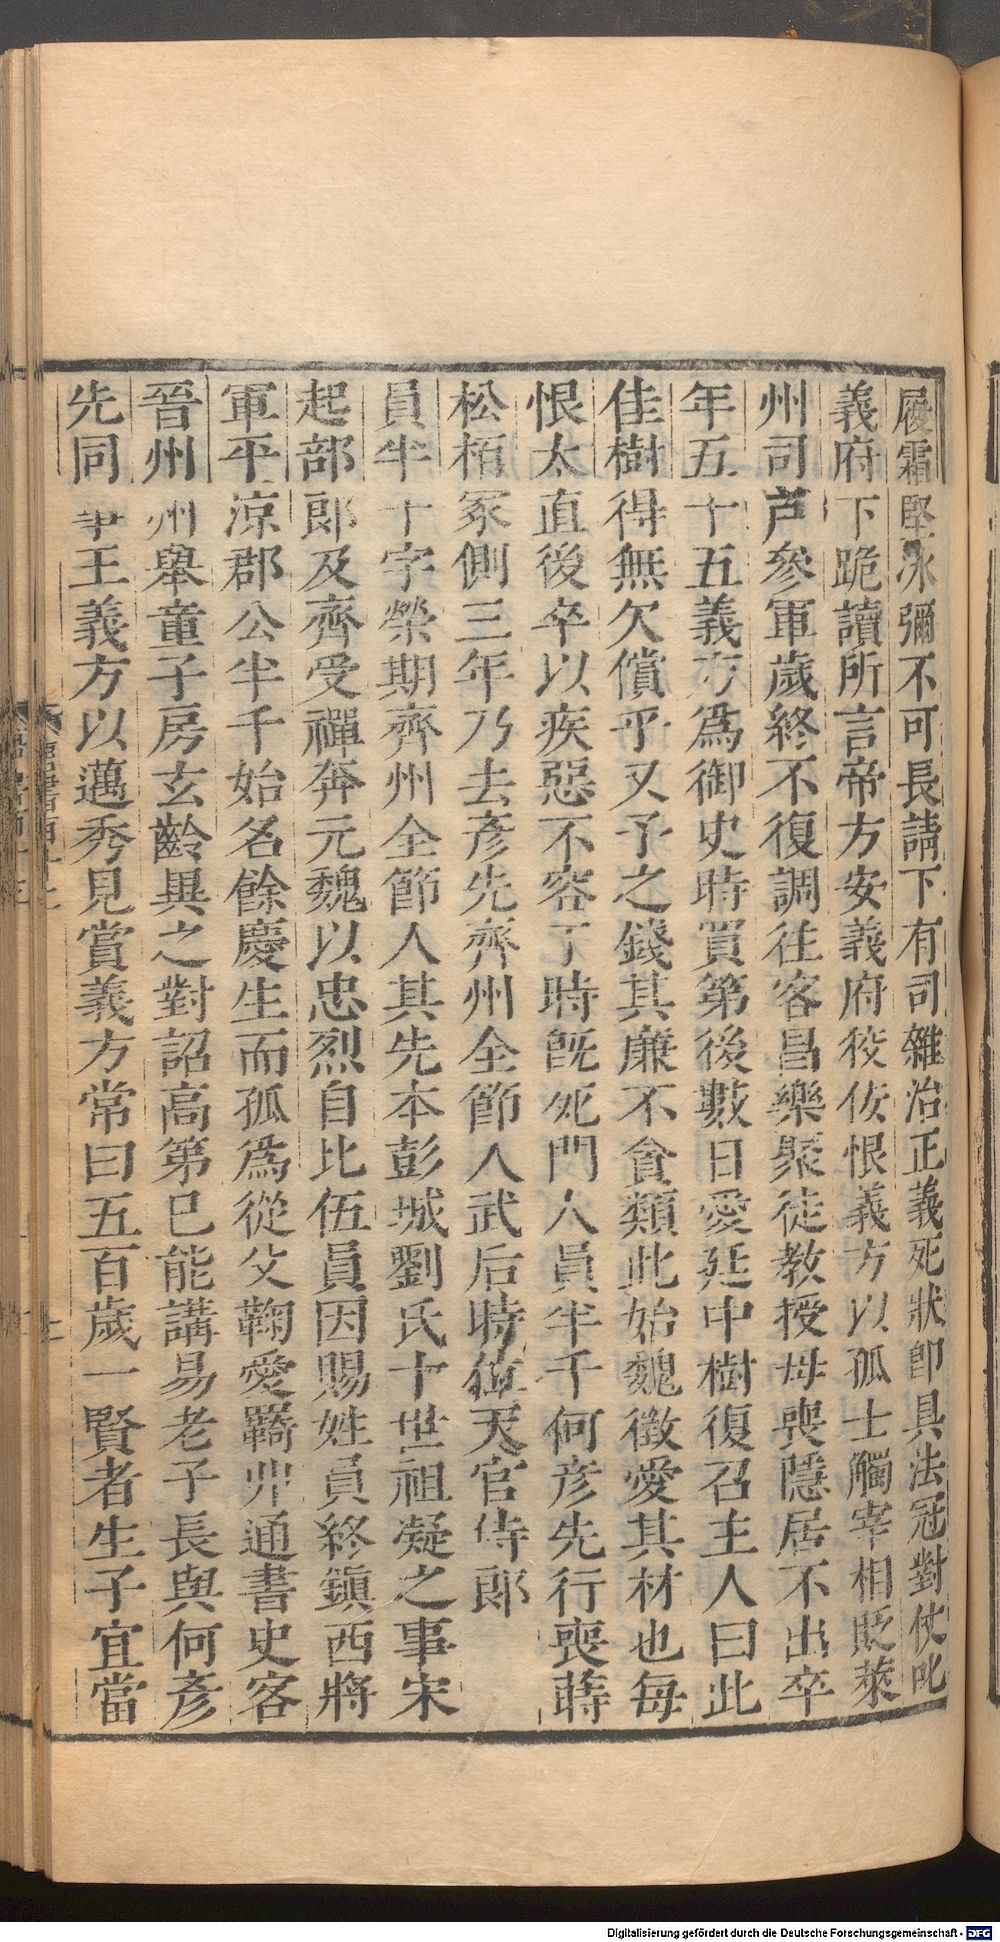 履霜堅冰彌不可長請下有司雜治正義死狀即具法冠對仗叱
義府下跪讀所言帝方安義府狡佞恨義方以孤士觸宰相貶萊
州司戸參軍歲終不復調往客昌樂聚徒教授母喪隱居不出卒
年五十五義方為御史時買第後數日愛廷中樹復召主人曰此
佳樹得無欠償乎又予之錢其廉不貪類此始魏徵愛其材也每
恨太直後卒以疾惡不容于時既死門人員半千何彥先行喪蒔
松栢冢側三年乃去彥先齊州全節人武后時位天官侍郎
員半千字榮期齊州全節人其先本彭城劉氏十世祖凝之事宋
起部郎及齊受禪奔元魏以忠烈自比伍員因賜姓員終鎮西將
軍平涼郡公半千始名餘慶生而孤為從父鞠愛羇丱通書史客
晉州州舉童子房玄齡異之對詔高第已能講易老子長與何彥
先同事王義方以邁秀見賞義方常曰五百歲一賢者生子宜當
Digitalisierung gefördert durch die Deutsche Forschungsgemeinschaft - DFG